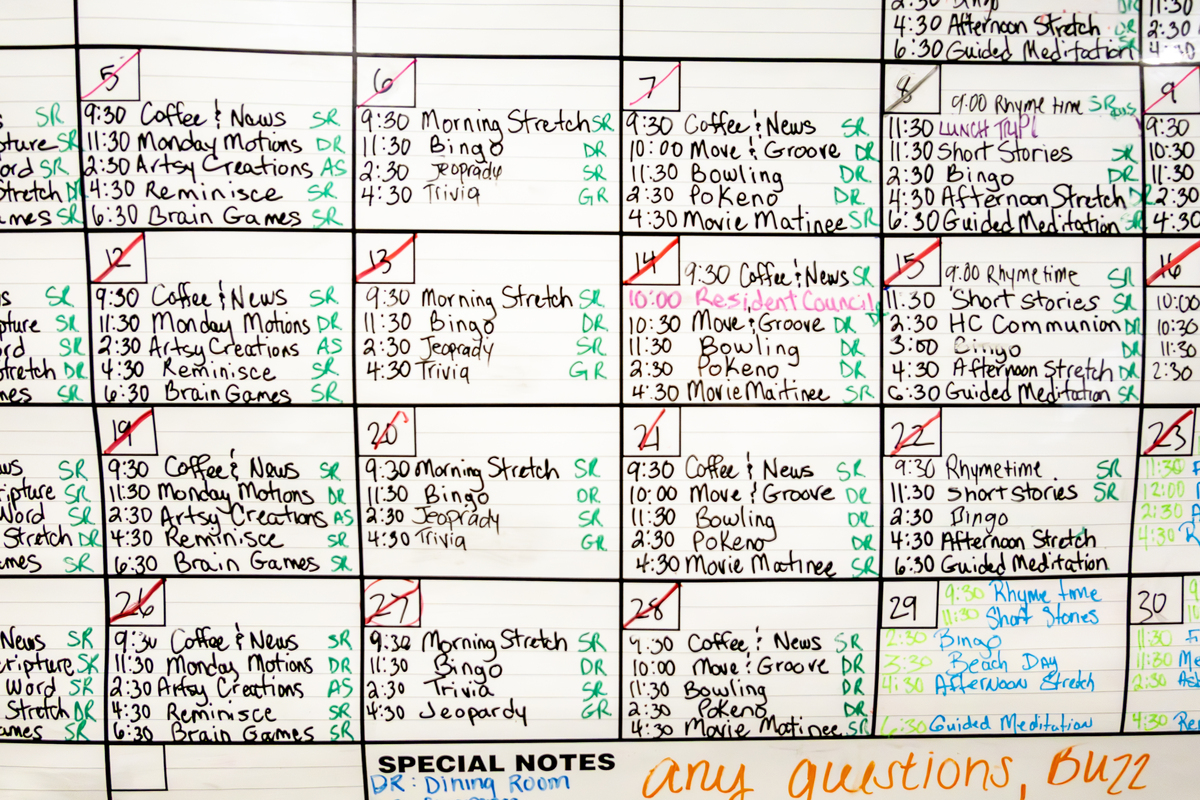 2:30 Bingo DR
4:30 Afternoon Stretch DR
6:30 Guided Meditation
11:30
2:30
4:30
SR
SR
ord SR
Stretch
ames SR
5
9:30 Coffee & Naws SR
11:30 Monday Motions DR
2:30 Artsy Creations AS
4:30 Reminisce SR
6:30 Brain Games SR
6
9:30 Morning Stretch SR
11:30 Bingo DR
2:30 Jeoprady SR
4:30 Trivia GR
7
9:30 Coffee & News SR
10:00 Move & Groove DR
11:30 Bowling DR
2:30 Pokeno DR
4:30 Movie Matinee SR
8 9:00 Rhyme time SR
11:30 LUNCH TRIP!
11:30 Short Stories SR
2:30 Bingo DR
4:30 Afternoon Stretch DR
6:30 Guided Meditation SR
9
9:30
10:30
11:30
2:30
4:30
s SR
pture SR
ord SR
stretch DR
mes SR
12
9:30 Coffee & News SR
11:30 Monday Motions DR
2:30 Artsy Creations AS
4:30 Reminisce SR
6:30 Brain Games SR
13
9:30 Morning Stretch SR
11:30 Bingo DR
2:30 Jeoprady SR
4:30 Trivia GR
14 9:30 Coffee & News SR
10:00 Resident Council DR
10:30 Move & Groove DR
11:30 Bowling DR
2:30 Pokeno DR
4:30 Movie Martinee SR
15 9:00 Rhymetime SR
11:30 Short stories SR
2:30 HC Communion DR
3:00 Bingo DR
4:30 Afternoon Stretch DR
6:30 Guided Meditation SR
16
10:00
10:30
11:30
2:30
ws SR
ripture SR
Word SR
Stretch DR
mes SR
19
9:30 Coffee & News SR
11:30 Monday Motions DR
2:30 Artsy Creations AS
4:30 Reminisce SR
6:30 Brain Games SR
20
9:30 Morning Stretch SR
11:30 Bingo DR
2:30 Jeoprady SR
4:30 Trivia GR
21
9:30 Coffee & News SR
10:00 Move & Groove DR
11:30 Bowling DR
2:30 Pokeno DR
4:30 Movie Matinee SR
22
9:30 Rhymetime SR
11:30 Short stories SR
2:30 Bingo
4:30 Afternoon Stretch
6:30 Guided Meditation
23
11:30 F
12:00
2:30 A
4:30 R
News SR
cripture SR
Word SR
Stretch DR
ames SR
26
9:30 Coffee & News SR
11:30 Monday Motions DR
2:30 Artsy Creations AS
4:30 Reminisce SR
6:30 Brain Games SR
27
9:30 Morning Stretch SR
11:30 Bingo DR
2:30 Trivia SR
4:30 Jeopardy GR
28
9:30 Coffee & News SR
10:00 Move & Groove DR
11:30 Bowling DR
2:30 Pokeno DR
4:30 Movie Matinee SR
29 9:30 Rhyme time
11:30 Short Stories
2:30 Bingo
3:30 Beach Day
4:30 Afternoon Stretch
6:30 Guided Meditation
30
11:30 Fi
11:30 Me
2:30 Ask
4:30 Re
SPECIAL NOTES
DR: Dining Room
any questions, Buzz